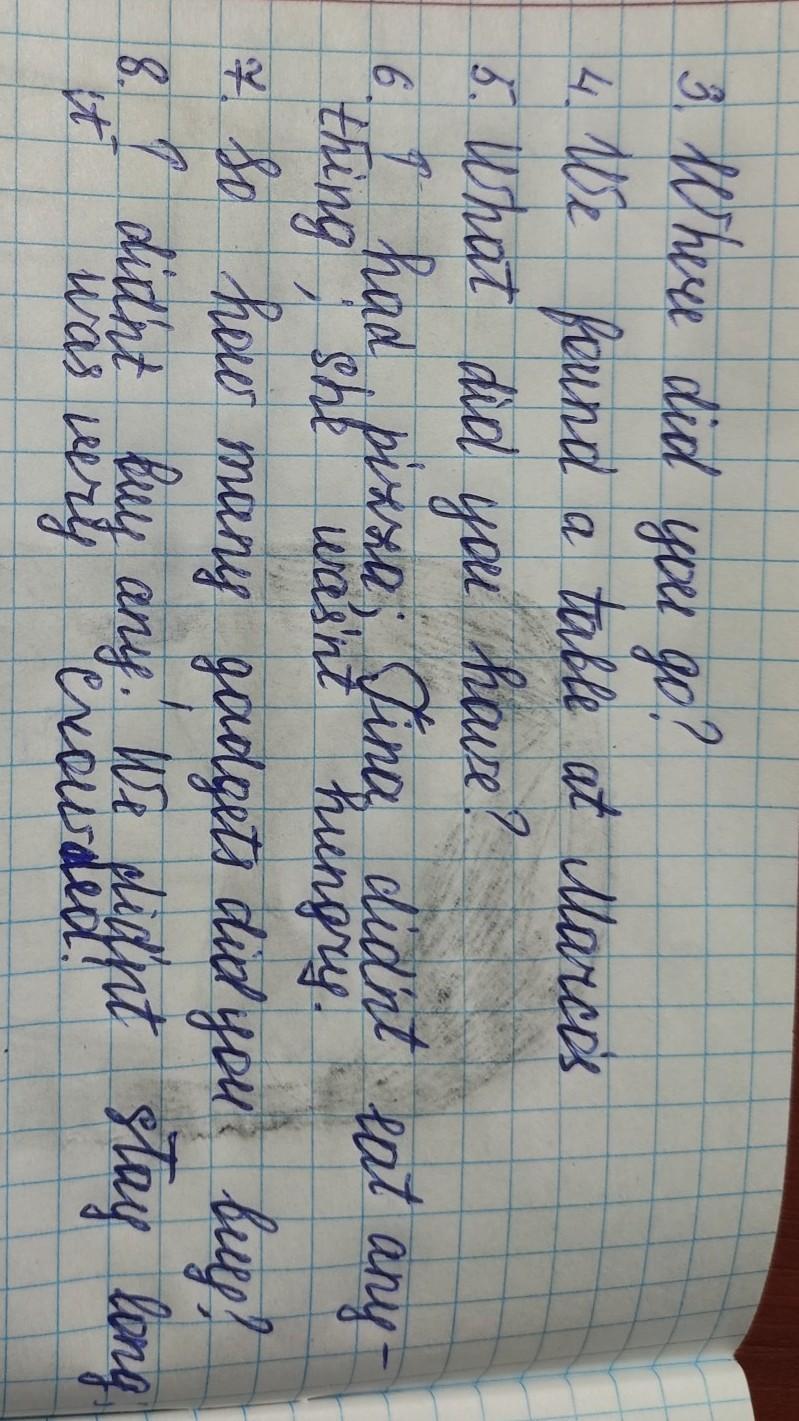 3. Where did you go?
4. We found a table at Marco's
5. What did you have?
6. I had pizza; Tina didn't eat any-
thing; she wasn't hungry.
7. So how many gadgets did you buy?
8. I didn't buy any. We didn't stay long;
it was very crowded.